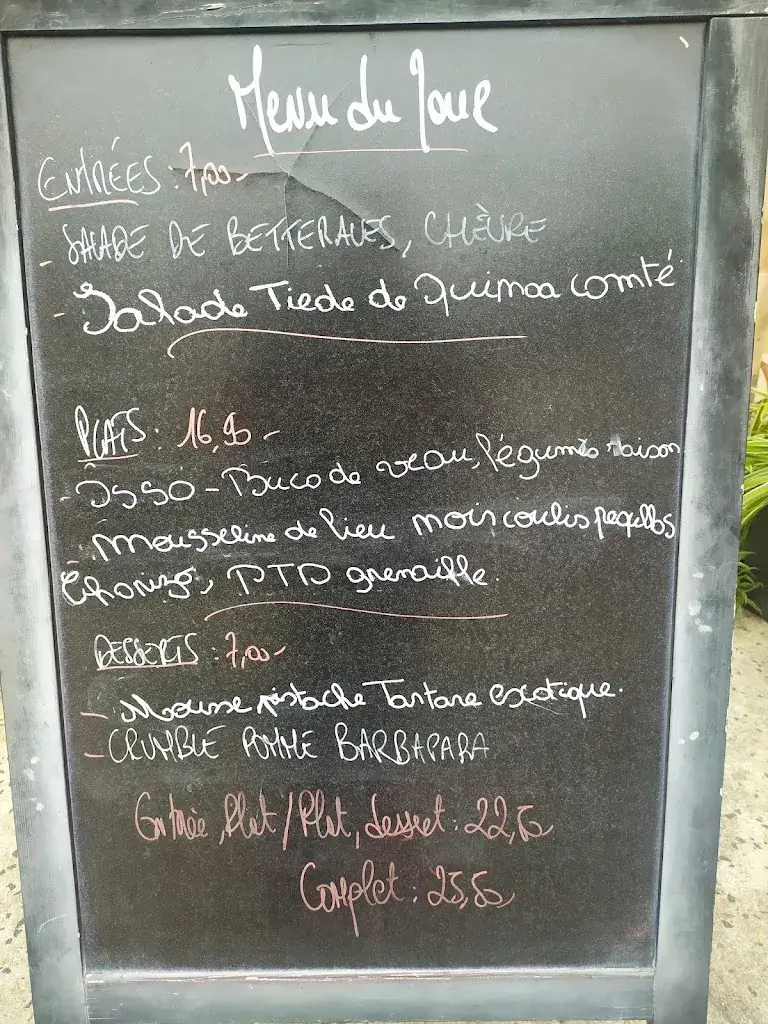 Menu du Jour
ENTRÉES : 7,00-
- SALADE DE BETTERAVES, CHÈVRE
- Salade Tiede de Quinoa comté
PLATS : 16,90-
- OSSO-Buco de veau, légumes saison
- Mousseline de lieu noir coulis pequillos
Chorizo, PTD grenaille.
DESSERTS : 7,00-
- Mousse pistache Tartare exotique.
- CRUMBLE POMME BARBAPAPA
Entrée, Plat / Plat, dessert : 22,50
Complet : 25,50